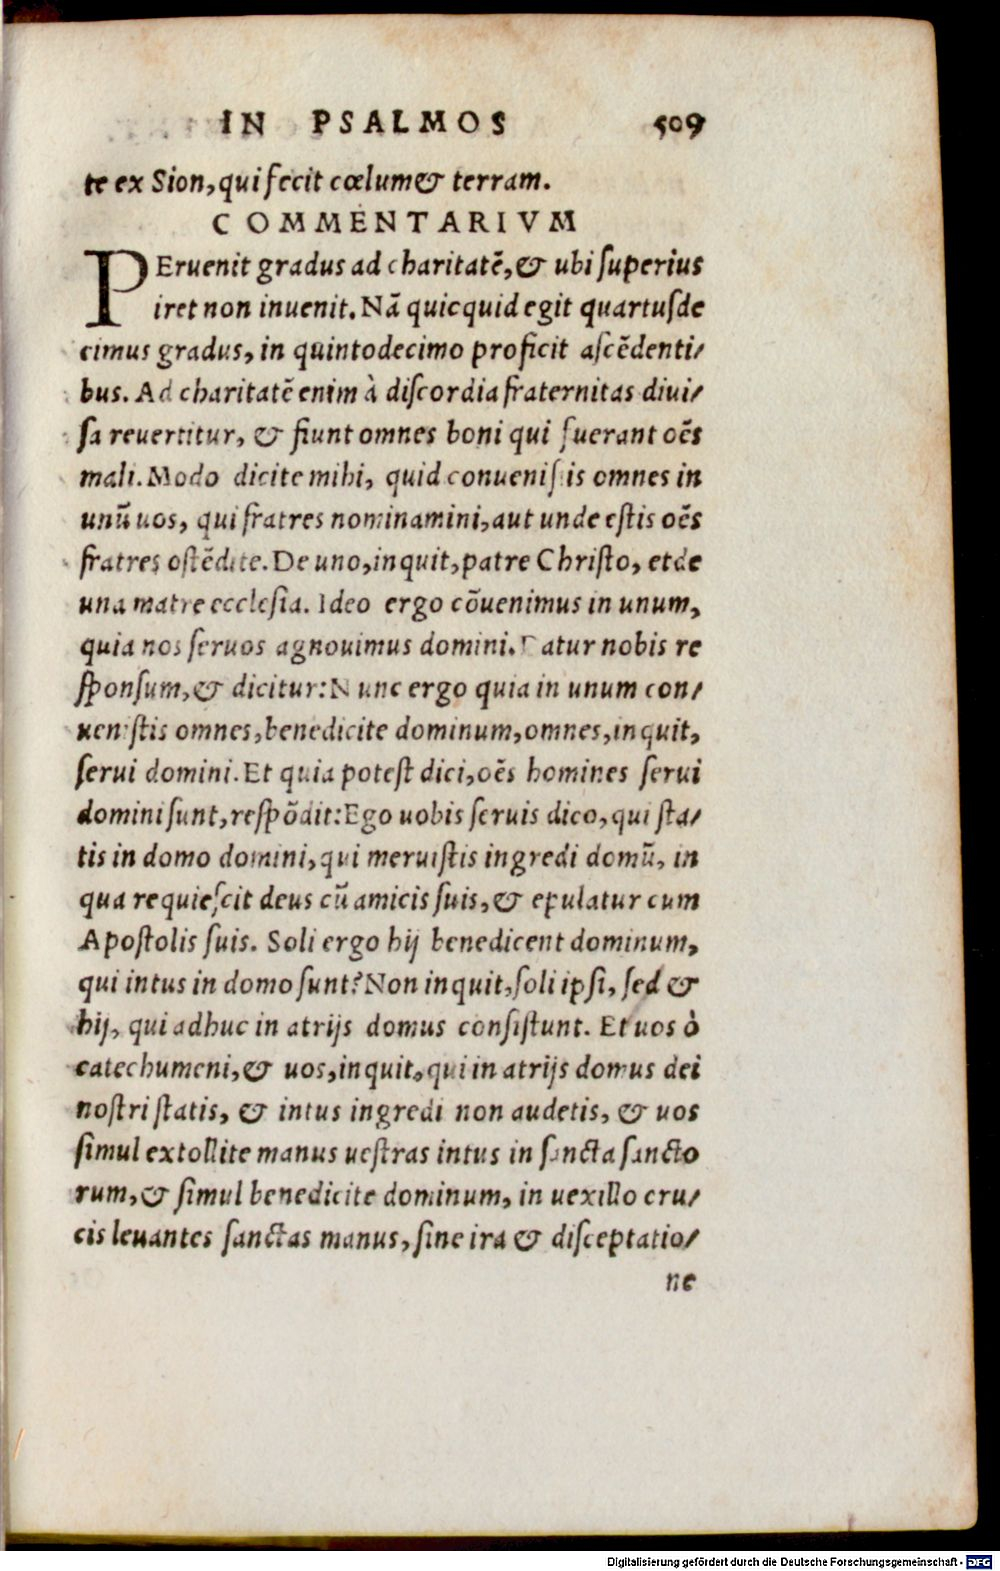 IN PSALMOS 509
te ex Sion, qui fecit cœlum & terram.
COMMENTARIVM
PEruenit gradus ad charitatē, & ubi superius
iret non inuenit. Nā quicquid egit quartusde
cimus gradus, in quintodecimo proficit ascēdenti/
bus. Ad charitatē enim à discordia fraternitas diui/
sa reuertitur, & fiunt omnes boni qui fuerant oēs
mali. Modo dicite mihi, quid conuenistis omnes in
unū uos, qui fratres nominamini, aut unde estis oēs
fratres ostēdite. De uno, inquit, patre Christo, et de
una matre ecclesia. Ideo ergo cōuenimus in unum,
quia nos seruos agnouimus domini. Datur nobis re
sponsum, & dicitur: Nunc ergo quia in unum con/
uenistis omnes, benedicite dominum, omnes, inquit,
serui domini. Et quia potest dici, oēs homines serui
domini sunt, respōdit: Ego uobis seruis dico, qui sta/
tis in domo domini, qui meruistis ingredi domū, in
qua requiescit deus cū amicis suis, & epulatur cum
Apostolis suis. Soli ergo hij benedicent dominum,
qui intus in domo sunt? Non inquit, soli ipsi, sed &
hij, qui adhuc in atrijs domus consistunt. Et uos ò
catechumeni, & uos, inquit, qui in atrijs domus dei
nostri statis, & intus ingredi non audetis, & uos
simul extollite manus uestras intus in sancta sancto
rum, & simul benedicite dominum, in uexillo cru/
cis leuantes sanctas manus, sine ira & disceptatio/
ne
Digitalisierung gefördert durch die Deutsche Forschungsgemeinschaft - DFG